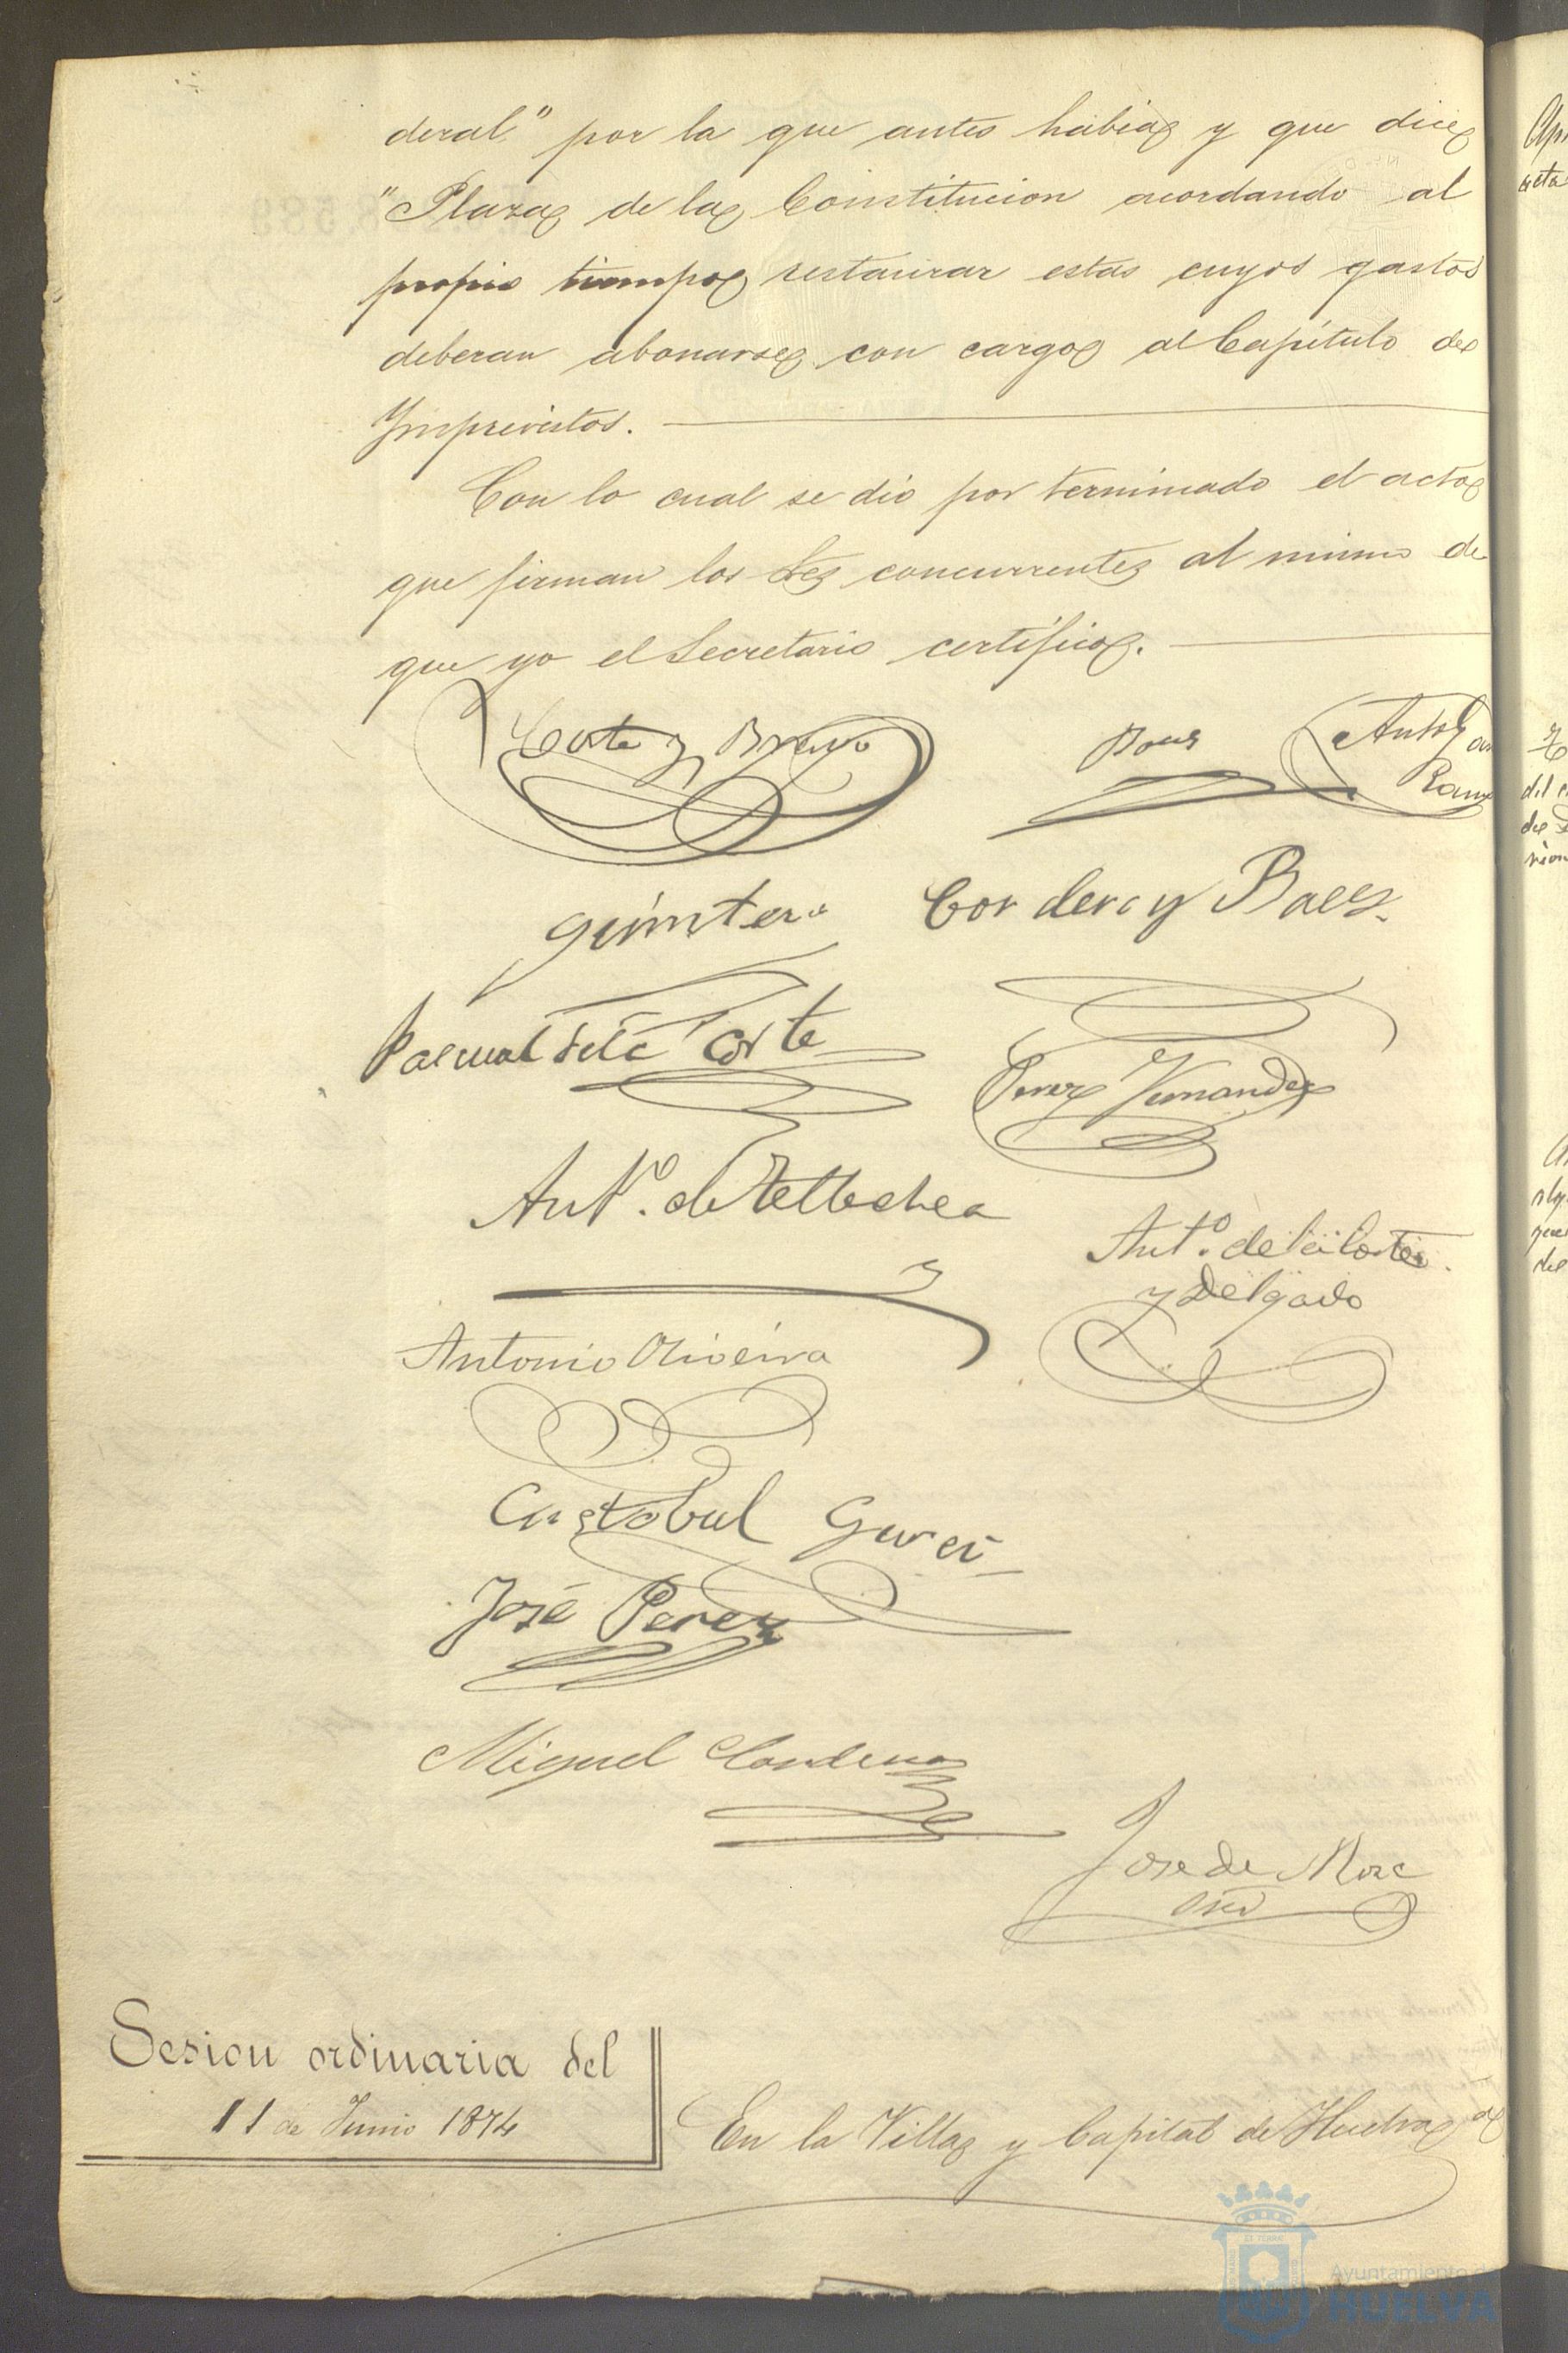 deral" por la que antes habia y que dice
"Plaza de la Constitucion acordando al
propio tiempo restaurar estas cuyos gastos
deberan abonarse con cargo al Capítulo de
Ymprevistos.
Con lo cual se dió por terminado el acto
que firman los Sres concurrentes al mismo de
que yo el Secretario certifico.
Corte y Bravo
Quintero Cordero y Baez
Pascual de la Corte
Perez Hernandez
Antº. de Tellechea
Antº. de la Corte
y Delgado
Antonio Oliveira
Cristobal Garcia
José Perez
Miguel
Jose de Mora
Srio
Sesion ordinaria del
11 de Junio 1874
En la Villa y Capital de Huelva a
Ayuntamiento de
HUELVA